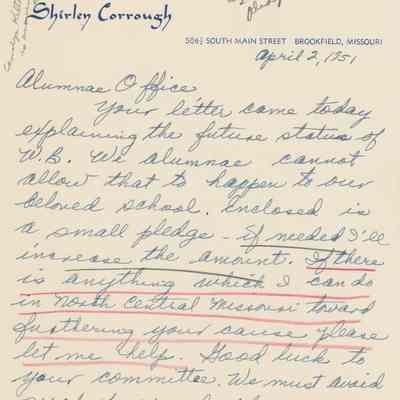 Shirley Corrough
506½ SOUTH MAIN STREET BROOKFIELD, MISSOURI
April 2, 1951
Alumnae Office
Your letter came today
explaining the future status of
W.B. We alumnae cannot
allow that to happen to our
beloved school. Enclosed is
a small pledge - if needed I'll
increase the amount. If there
is anything which I can do
in North Central Missouri toward
furthering your cause please
let me help. Good luck to
your committee. We must avoid